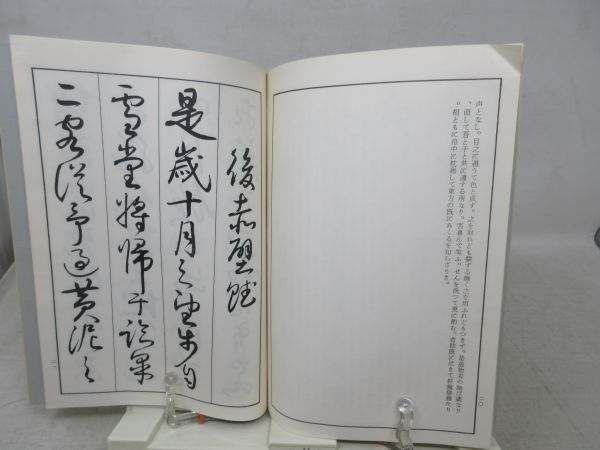 声となし。目之に遇うて色と成す。之を取れども禁ずる無く之を用ふれどもつきず。是造物者の無尽蔵なり
、而して吾と子と共に適する所なり。客喜んで笑ふ。せんを洗つて更に酌む。肴核既に尽きて杯盤狼藉たり
。相ともに舟中に枕藉して東方の既にあくるを知らざりき。
二〇
後赤壁賦
是歳十月之望步自
雪堂将帰于臨皋
二客従予過黄泥之